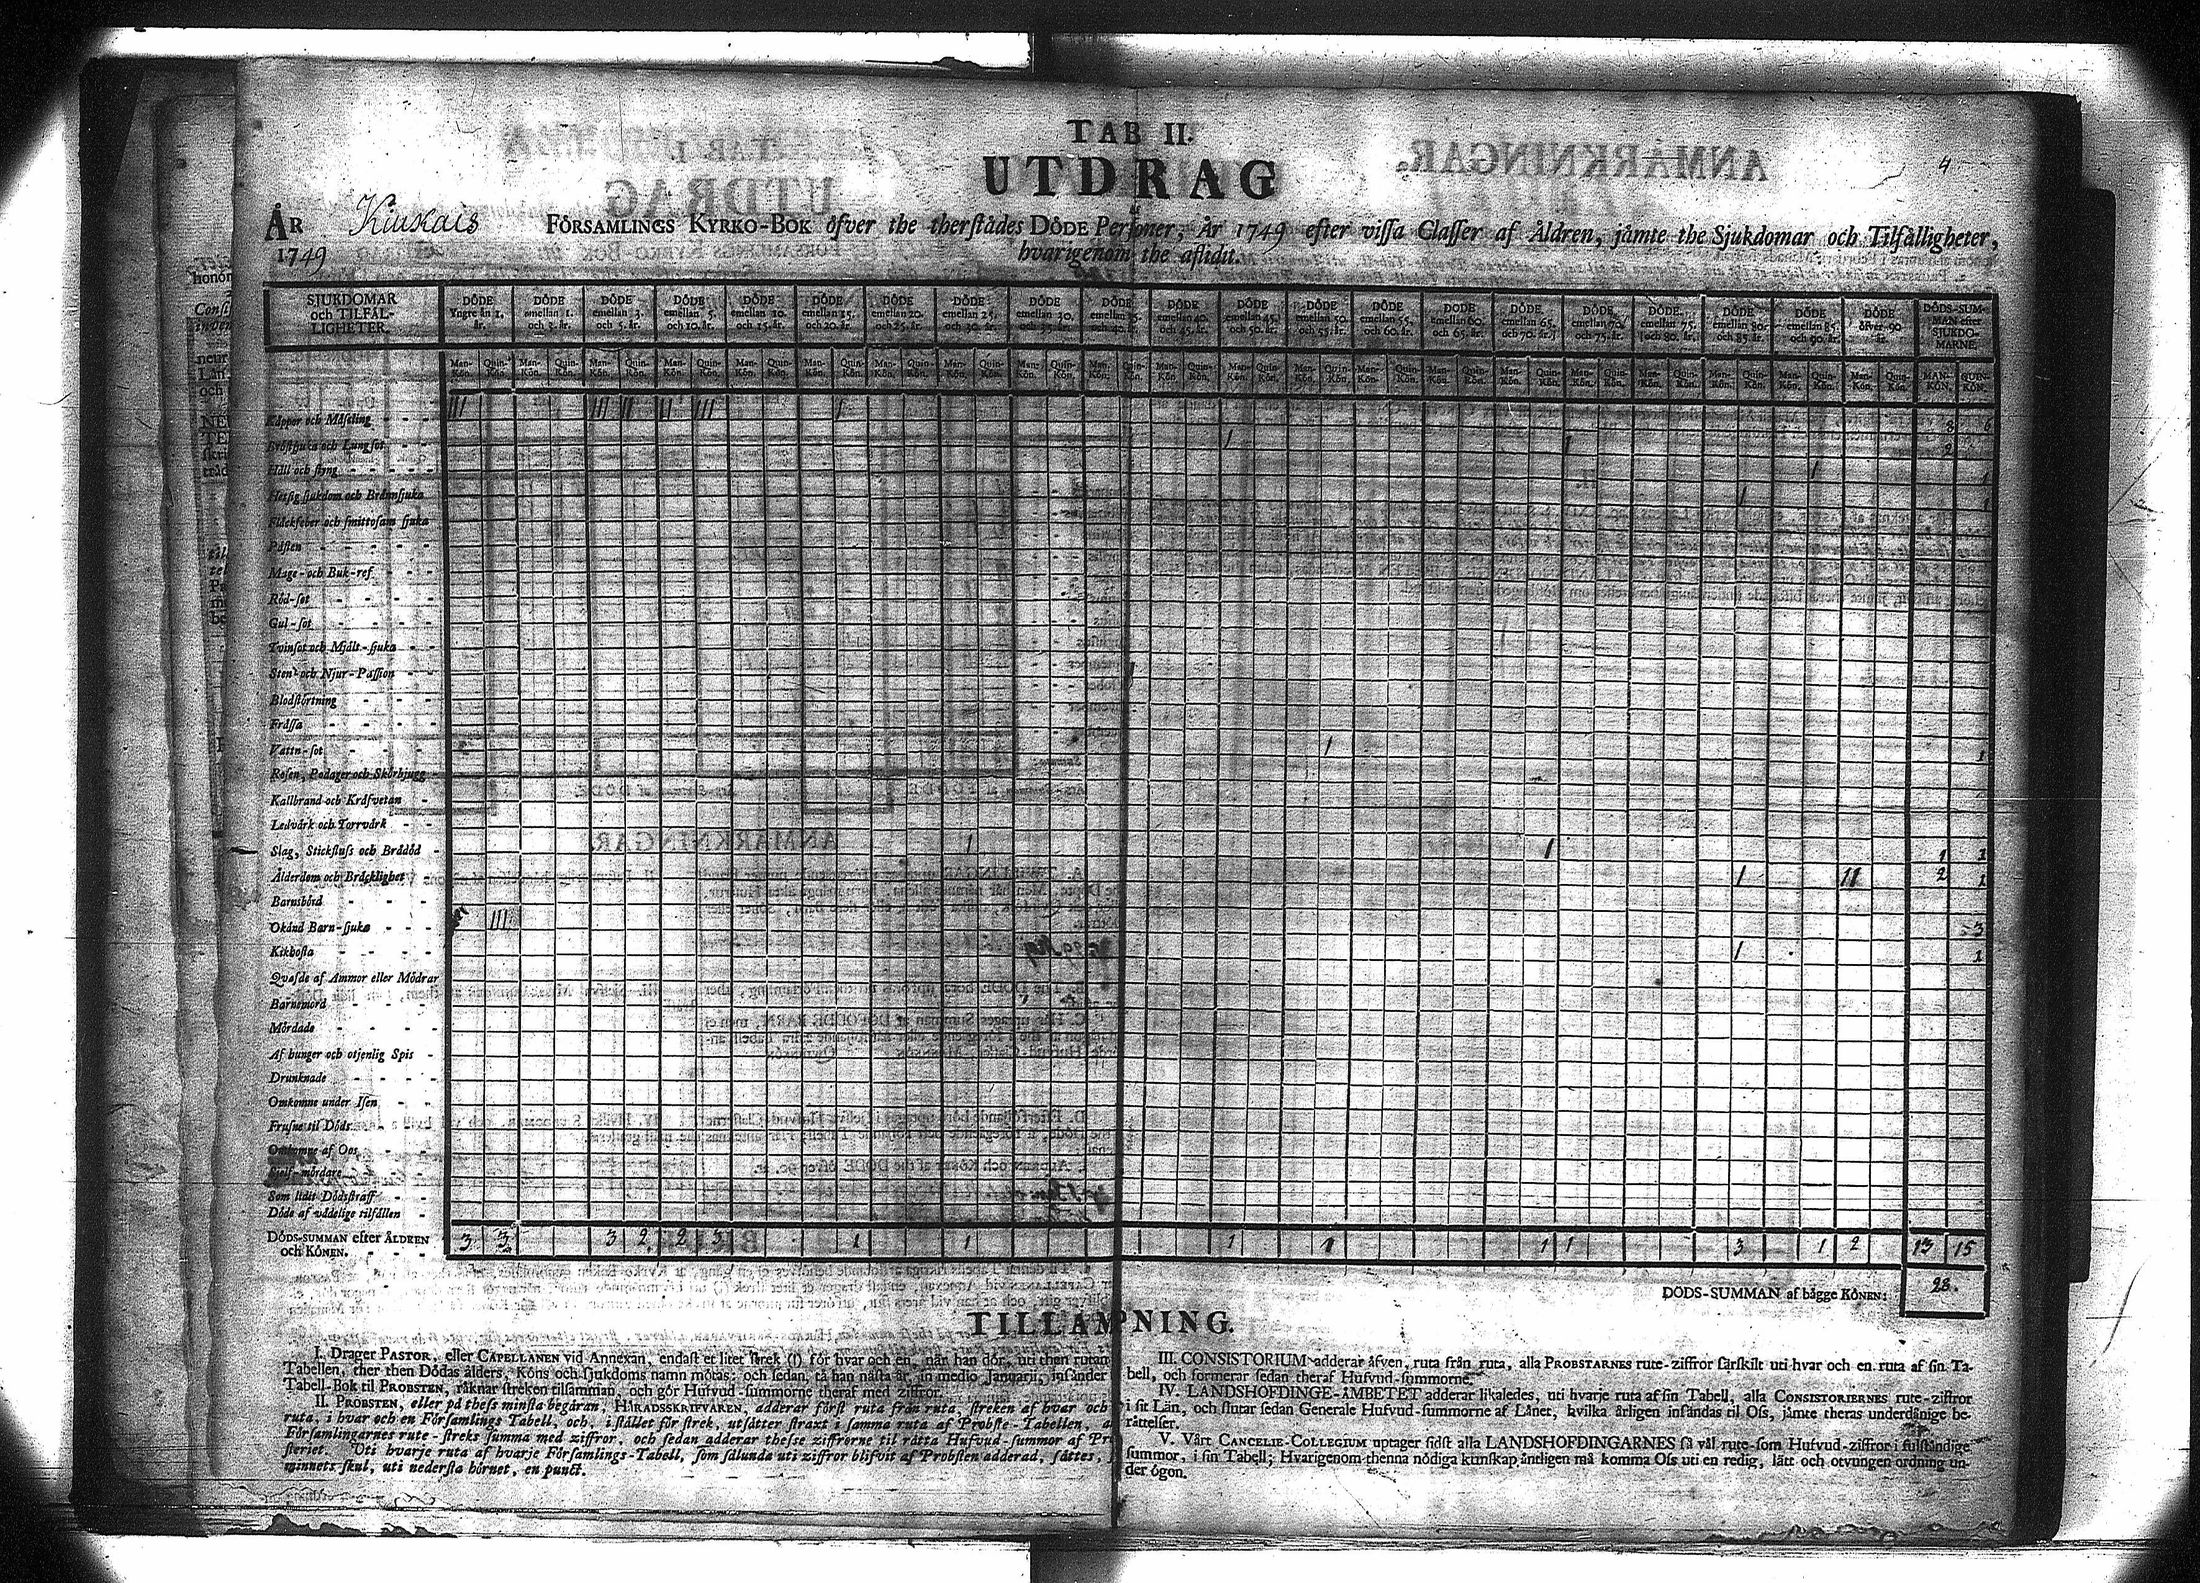 TAB II.
UTDRAG
4
ÅR Kiukais FÖRSAMLINGS KYRKO-BOK öfver the therstädes DÖDE Personer, År 1749 efter vissa Classer af Åldren, jämte the Sjukdomar och Tilfälligheter,
1749 hvarigenom the aflidit.
SJUKDOMAR och TILFÄLLIGHETER.
DÖDE Yngre än 1. år.
DÖDE emellan 1. och 3. år.
DÖDE emellan 3. och 5. år.
DÖDE emellan 5. och 10. år.
DÖDE emellan 10. och 15. år.
DÖDE emellan 15. och 20. år.
DÖDE emellan 20. och 25. år.
DÖDE emellan 25. och 30. år.
DÖDE emellan 30. och 35. år.
DÖDE emellan 35. och 40. år.
DÖDE emellan 40. och 45. år.
DÖDE emellan 45. och 50. år.
DÖDE emellan 50. och 55. år.
DÖDE emellan 55. och 60. år.
DÖDE emellan 60. och 65. år.
DÖDE emellan 65. och 70. år.
DÖDE emellan 70. och 75. år.
DÖDE emellan 75. och 80. år.
DÖDE emellan 80. och 85. år.
DÖDE emellan 85. och 90. år.
DÖDE öfver 90 år.
DÖDS-SUMMAN efter SJUKDOMARNE.
Man-Kön. Quin-Kön. Man-Kön. Quin-Kön. Man-Kön. Quin-Kön. Man-Kön. Quin-Kön. Man-Kön. Quin-Kön. Man-Kön. Quin-Kön. Man-Kön. Quin-Kön. Man-Kön. Quin-Kön. Man-Kön. Quin-Kön. Man-Kön. Quin-Kön. Man-Kön. Quin-Kön. Man-Kön. Quin-Kön. Man-Kön. Quin-Kön. Man-Kön. Quin-Kön. Man-Kön. Quin-Kön. Man-Kön. Quin-Kön. Man-Kön. Quin-Kön. Man-Kön. Quin-Kön. Man-Kön. Quin-Kön. Man-Kön. Quin-Kön. Man-Kön. Quin-Kön. MAN-KÖN. QUIN-KÖN.
Koppor och Mässling III III II II III I 8 6
Bröstsjuka och Lungsot I I 2
Håll och styng I 1
Hetsig sjukdom och Brännsjuka I 1
Fläckfeber och smittosam sjuka
Pästen
Mage- och Buk-ref
Röd-sot
Gul-sot
Tvinsot och Mjält-sjuka
Sten- och Njur-Passion
Blodstörtning
Frossa
Vattn-sot I 1
Rosen, Podager och Skörbjugg
Kallbrand och Kräfvetan
Ledvärk och Torrvärk
Slag, Stickfluss och Brådöd I I 1 1
Ålderdom och Bräcklighet I II 2 1
Barnsbörd
Okänd Barn-sjuka III 3
Kikhosta I 1
Qvafde af Ammor eller Mödrar
Barnemord
Mördade
Af hunger och otjenlig Spis
Drunknade
Omkomne under Isen
Frusne til Döds
Omkomne af Oos
Sjelf-mördare
Som lidit Dödsstraff
Döde af vådelige tilfällen
DÖDS-SUMMAN efter ÅLDREN och KÖNEN. 3 3 3 2 2 3 1 1 1 1 1 1 3 1 2 13 15
DÖDS-SUMMAN af bägge KÖNEN: 28.
TILLÄMPNING.
I. Drager PASTOR, eller CAPELLANEN vid Annexan, endast et litet streck (I) för hvar och en, när han dör, uti then rutan
Tabellen, ther then Dödas ålders, Köns och sjukdoms namn mötas; och sedan, tå han nästa år, in medio Januarii, insänder
Tabell-Bok til PROBSTEN, räknar streken tillsamman, och gör Hufvud-summorne theraf med ziffror.
II. PROBSTEN, eller på thess minsta begäran, HÄRADSSKRIFVAREN, adderar först ruta från ruta, streken af hvar och
ruta, i hvar och en Församlings Tabell, och, i stället för strek, utsätter straxt i samma ruta af Probste-Tabellen,
Församlingarnes rute-streks summa med ziffror, och sedan adderar thesse ziffrorne til rätta Hufvud-summor af
steriet. Uti hvarje ruta af hvarje Församlings-Tabell, som sålunda uti ziffror blifvit af Probsten adderad, sättes,
minnets skul, uti nedersta hörnet, en punct.
III. CONSISTORIUM adderar äfven, ruta från ruta, alla PROBSTARNES rute-ziffror särskilt uti hvar och en ruta af sin Ta-
bell, och formerar sedan theraf Hufvud-summorne.
IV. LANDSHÖFDINGE-ÄMBETET adderar likaledes, uti hvarje ruta af sin Tabell, alla CONSISTORIERNES rute-ziffror
i sit Län, och slutar sedan Generale Hufvud-summorne af Länet, hvilka årligen insändas til Oss, jämte theras underdånige be-
rättelser.
V. Vårt CANCELIE-COLLEGIUM uptager sidst alla LANDSHÖFDINGARNES så väl rute- som Hufvud-ziffror i fulständige
summor, i sin Tabell; Hvarigenom thenna nödiga kunskap äntligen må komma Oss uti en redig, lätt och otvungen ordning un-
der ögon.